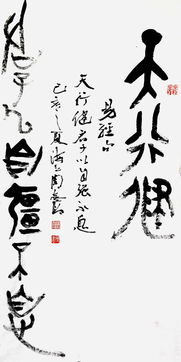 天行健
君子以自彊不息
易經句
天行健君子以自强不息
己亥之夏